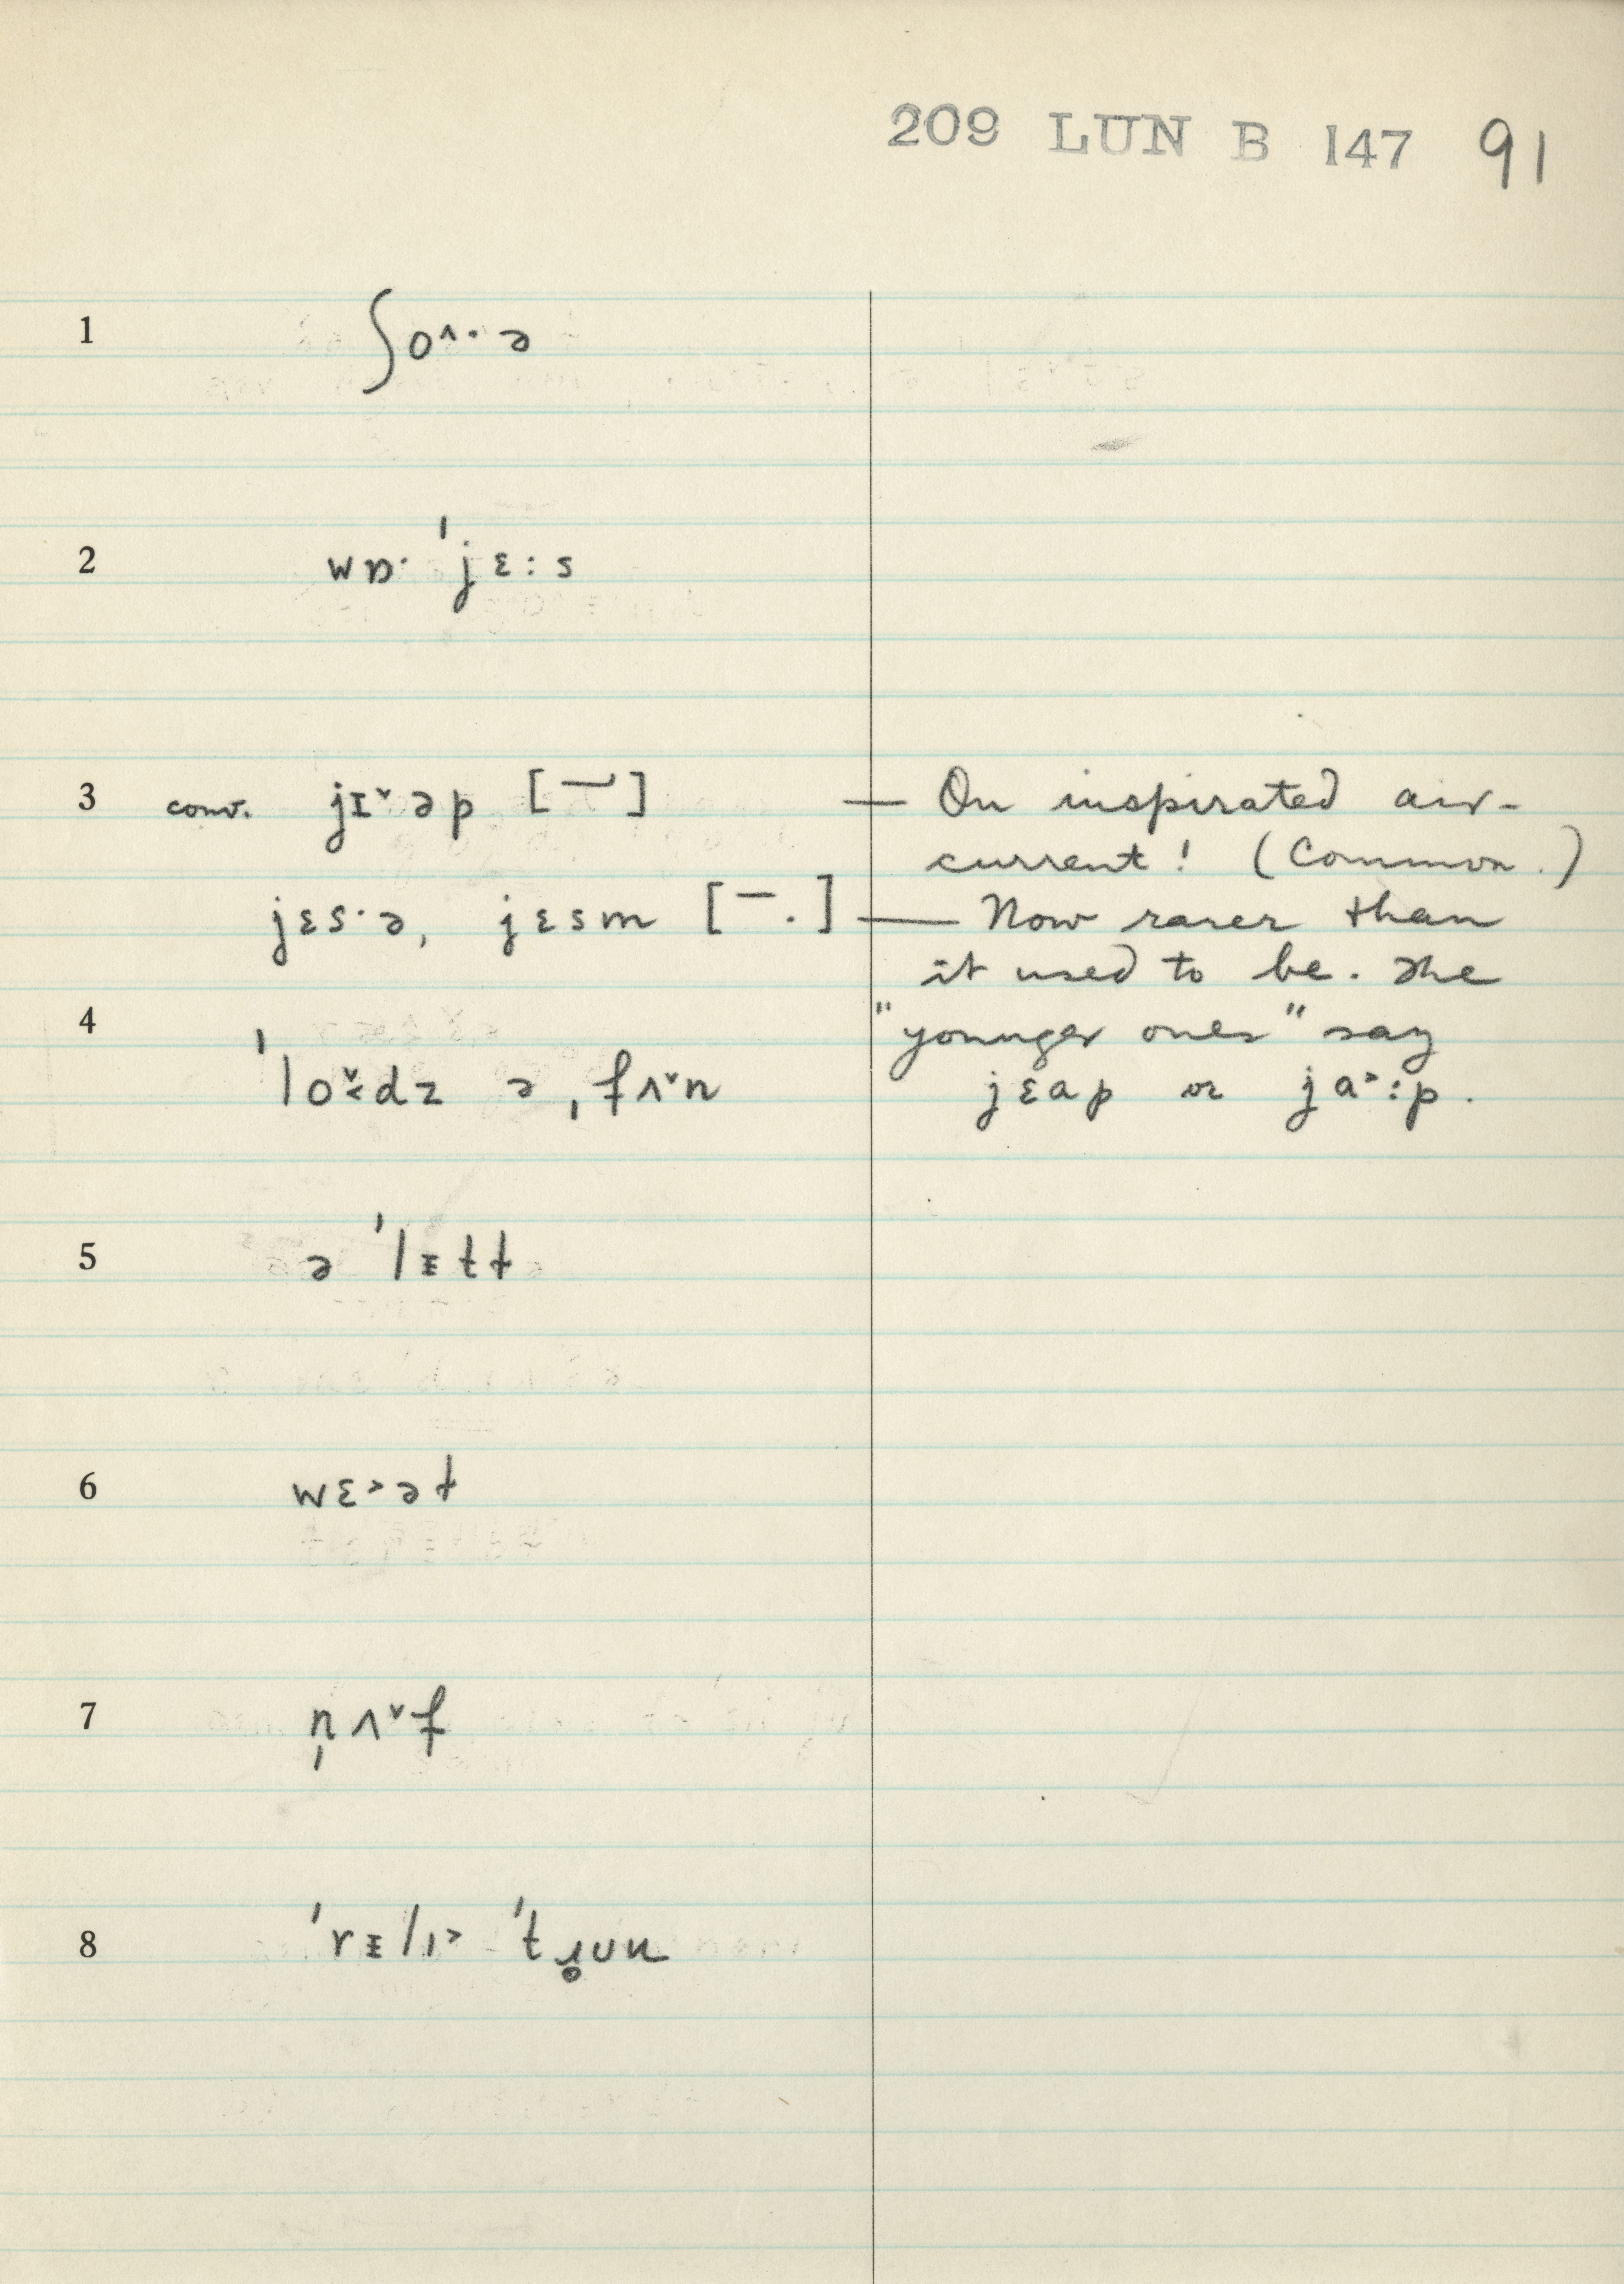 209 LUN B 147 91
1 ʃo^·ə
2 wɒ· ˈjɛ:s
3 conv. jɪˇəp [ ] — On inspirated air-
current! (Common.)
jɛs·ə, jɛsm [¯.] — Now rarer than
it used to be. The
4 "younger ones" say
ˈlodz ə ˌfʌˇn jɛap or ja˃:p.
5 ə ˈlɪtt
6 wɛ˃ət
7 n̩ʌˇf
8 ˈrɪlɪ˃ ˈtɹ̥un